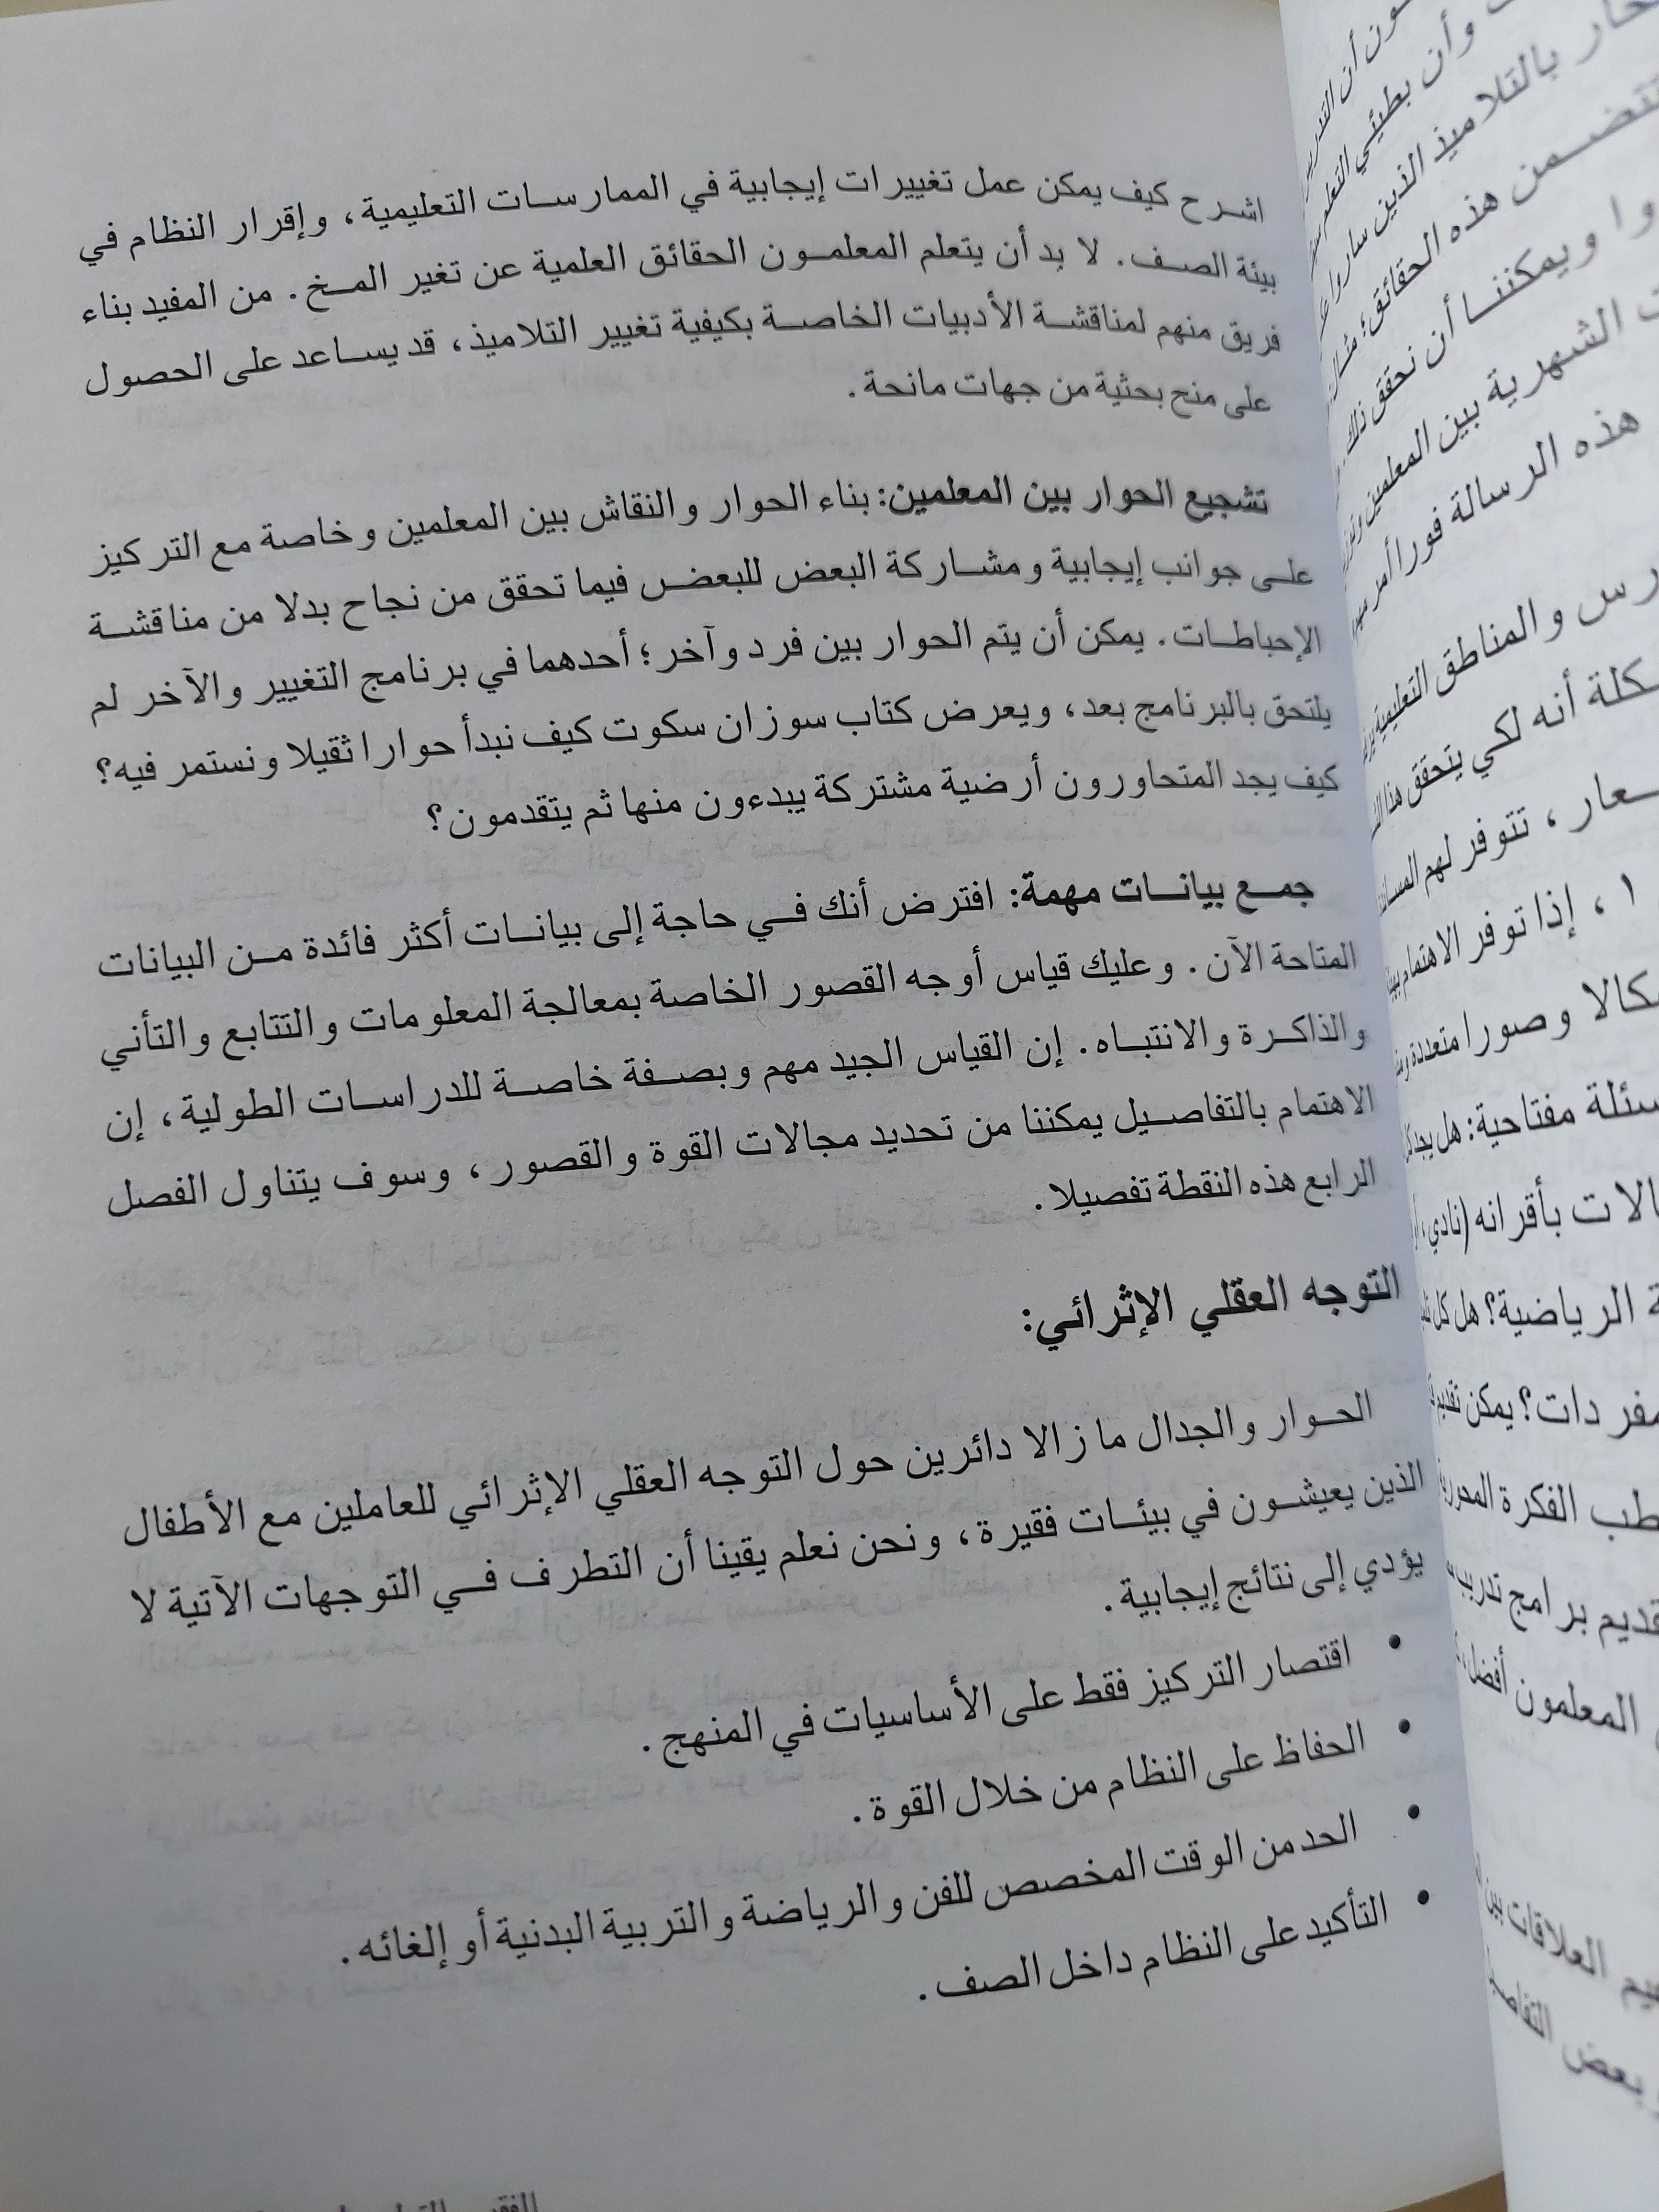 اشرح كيف يمكن عمل تغييرات إيجابية في الممارسات التعليمية، وإقرار النظام في
بيئة الصف. لا بد أن يتعلم المعلمون الحقائق العلمية عن تغير المخ. من المفيد بناء
فريق منهم لمناقشة الأدبيات الخاصة بكيفية تغيير التلاميذ، قد يساعد على الحصول
على منح بحثية من جهات مانحة.
تشجيع الحوار بين المعلمين: بناء الحوار والنقاش بين المعلمين وخاصة مع التركيز
على جوانب إيجابية ومشاركة البعض للبعض فيما تحقق من نجاح بدلا من مناقشة
الإحباطات. يمكن أن يتم الحوار بين فرد وآخر؛ أحدهما في برنامج التغيير والآخر لم
يلتحق بالبرنامج بعد، ويعرض كتاب سوزان سكوت كيف نبدأ حوارا ثقيلا ونستمر فيه؟
كيف يجد المتحاورون أرضية مشتركة يبدءون منها ثم يتقدمون؟
جمع بيانات مهمة: افترض أنك في حاجة إلى بيانات أكثر فائدة من البيانات
المتاحة الآن. وعليك قياس أوجه القصور الخاصة بمعالجة المعلومات والتتابع والتأني
والذاكرة والانتباه. إن القياس الجيد مهم وبصفة خاصة للدراسات الطولية، إن
الاهتمام بالتفاصيل يمكننا من تحديد مجالات القوة والقصور، وسوف يتناول الفصل
الرابع هذه النقطة تفصيلا.
التوجه العقلي الإثرائي:
الحوار والجدال ما زالا دائرين حول التوجه العقلي الإثرائي للعاملين مع الأطفال
الذين يعيشون في بيئات فقيرة، ونحن نعلم يقينا أن التطرف في التوجهات الآتية لا
يؤدي إلى نتائج إيجابية.
• اقتصار التركيز فقط على الأساسيات في المنهج.
• الحفاظ على النظام من خلال القوة.
• الحد من الوقت المخصص للفن والرياضة والتربية البدنية أو إلغائه.
• التأكيد على النظام داخل الصف.
ون أن التدريس
وأن بطيئي التعلم
بالتلاميذ الذين ساروا
من هذه الحقائق؛
ويمكننا أن نحقق ذلك
الشهرية بين المعلمين
هذه الرسالة فورا أمر
والمناطق التعليمية
أنه لكي يتحقق هذا
، تتوفر لهم
١، إذا توفر الاهتمام
وصورا متعددة
مفتاحية: هل يجد
بأقرانه (نادي،
الرياضية؟ هل كل
؟ يمكن تقديم
الفكرة المحورية
برامج تدريب
المعلمون أفضل
العلاقات بين
بعض